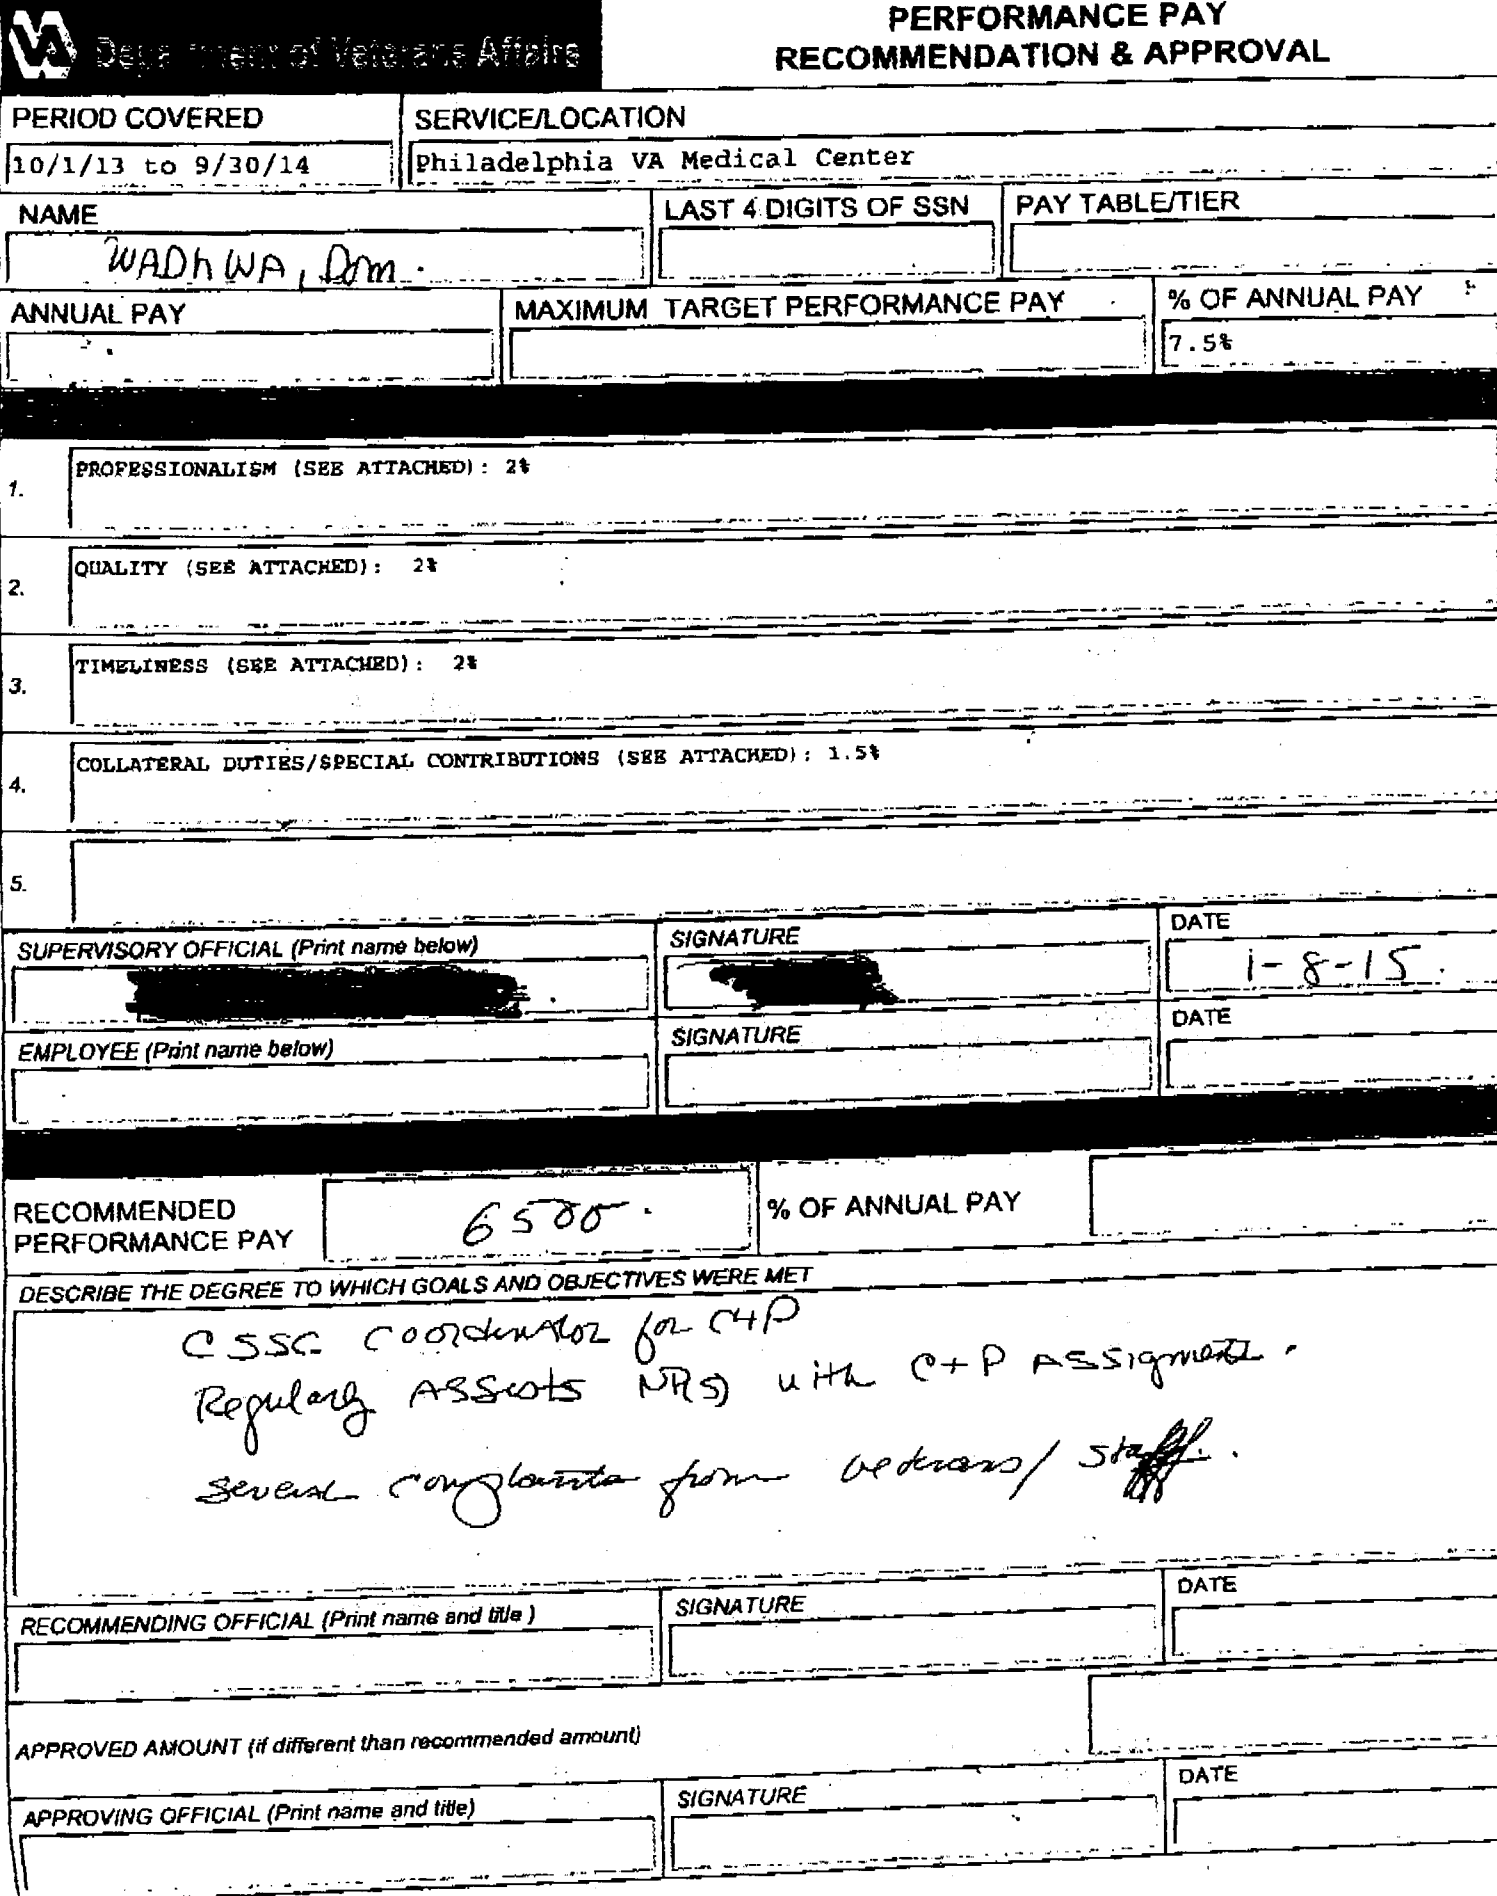 VA Department of Veterans Affairs
PERFORMANCE PAY
RECOMMENDATION & APPROVAL
PERIOD COVERED
SERVICE/LOCATION
10/1/13 to 9/30/14
Philadelphia VA Medical Center
NAME
LAST 4 DIGITS OF SSN
PAY TABLE/TIER
WADhWA, Dom.
ANNUAL PAY
MAXIMUM TARGET PERFORMANCE PAY
% OF ANNUAL PAY
7.5%
1.
PROFESSIONALISM (SEE ATTACHED): 2%
2.
QUALITY (SEE ATTACHED): 2%
3.
TIMELINESS (SEE ATTACHED): 2%
4.
COLLATERAL DUTIES/SPECIAL CONTRIBUTIONS (SEE ATTACHED): 1.5%
5.
SUPERVISORY OFFICIAL (Print name below)
SIGNATURE
DATE
1-8-15.
EMPLOYEE (Print name below)
SIGNATURE
DATE
RECOMMENDED
PERFORMANCE PAY
6500.
% OF ANNUAL PAY
DESCRIBE THE DEGREE TO WHICH GOALS AND OBJECTIVES WERE MET
CSSC Coordinator for C+P
Regularly ASSists NP(s) with C+P ASSigments.
Several Complaints from veterans/ staff.
RECOMMENDING OFFICIAL (Print name and title )
SIGNATURE
DATE
APPROVED AMOUNT (if different than recommended amount)
APPROVING OFFICIAL (Print name and title)
SIGNATURE
DATE